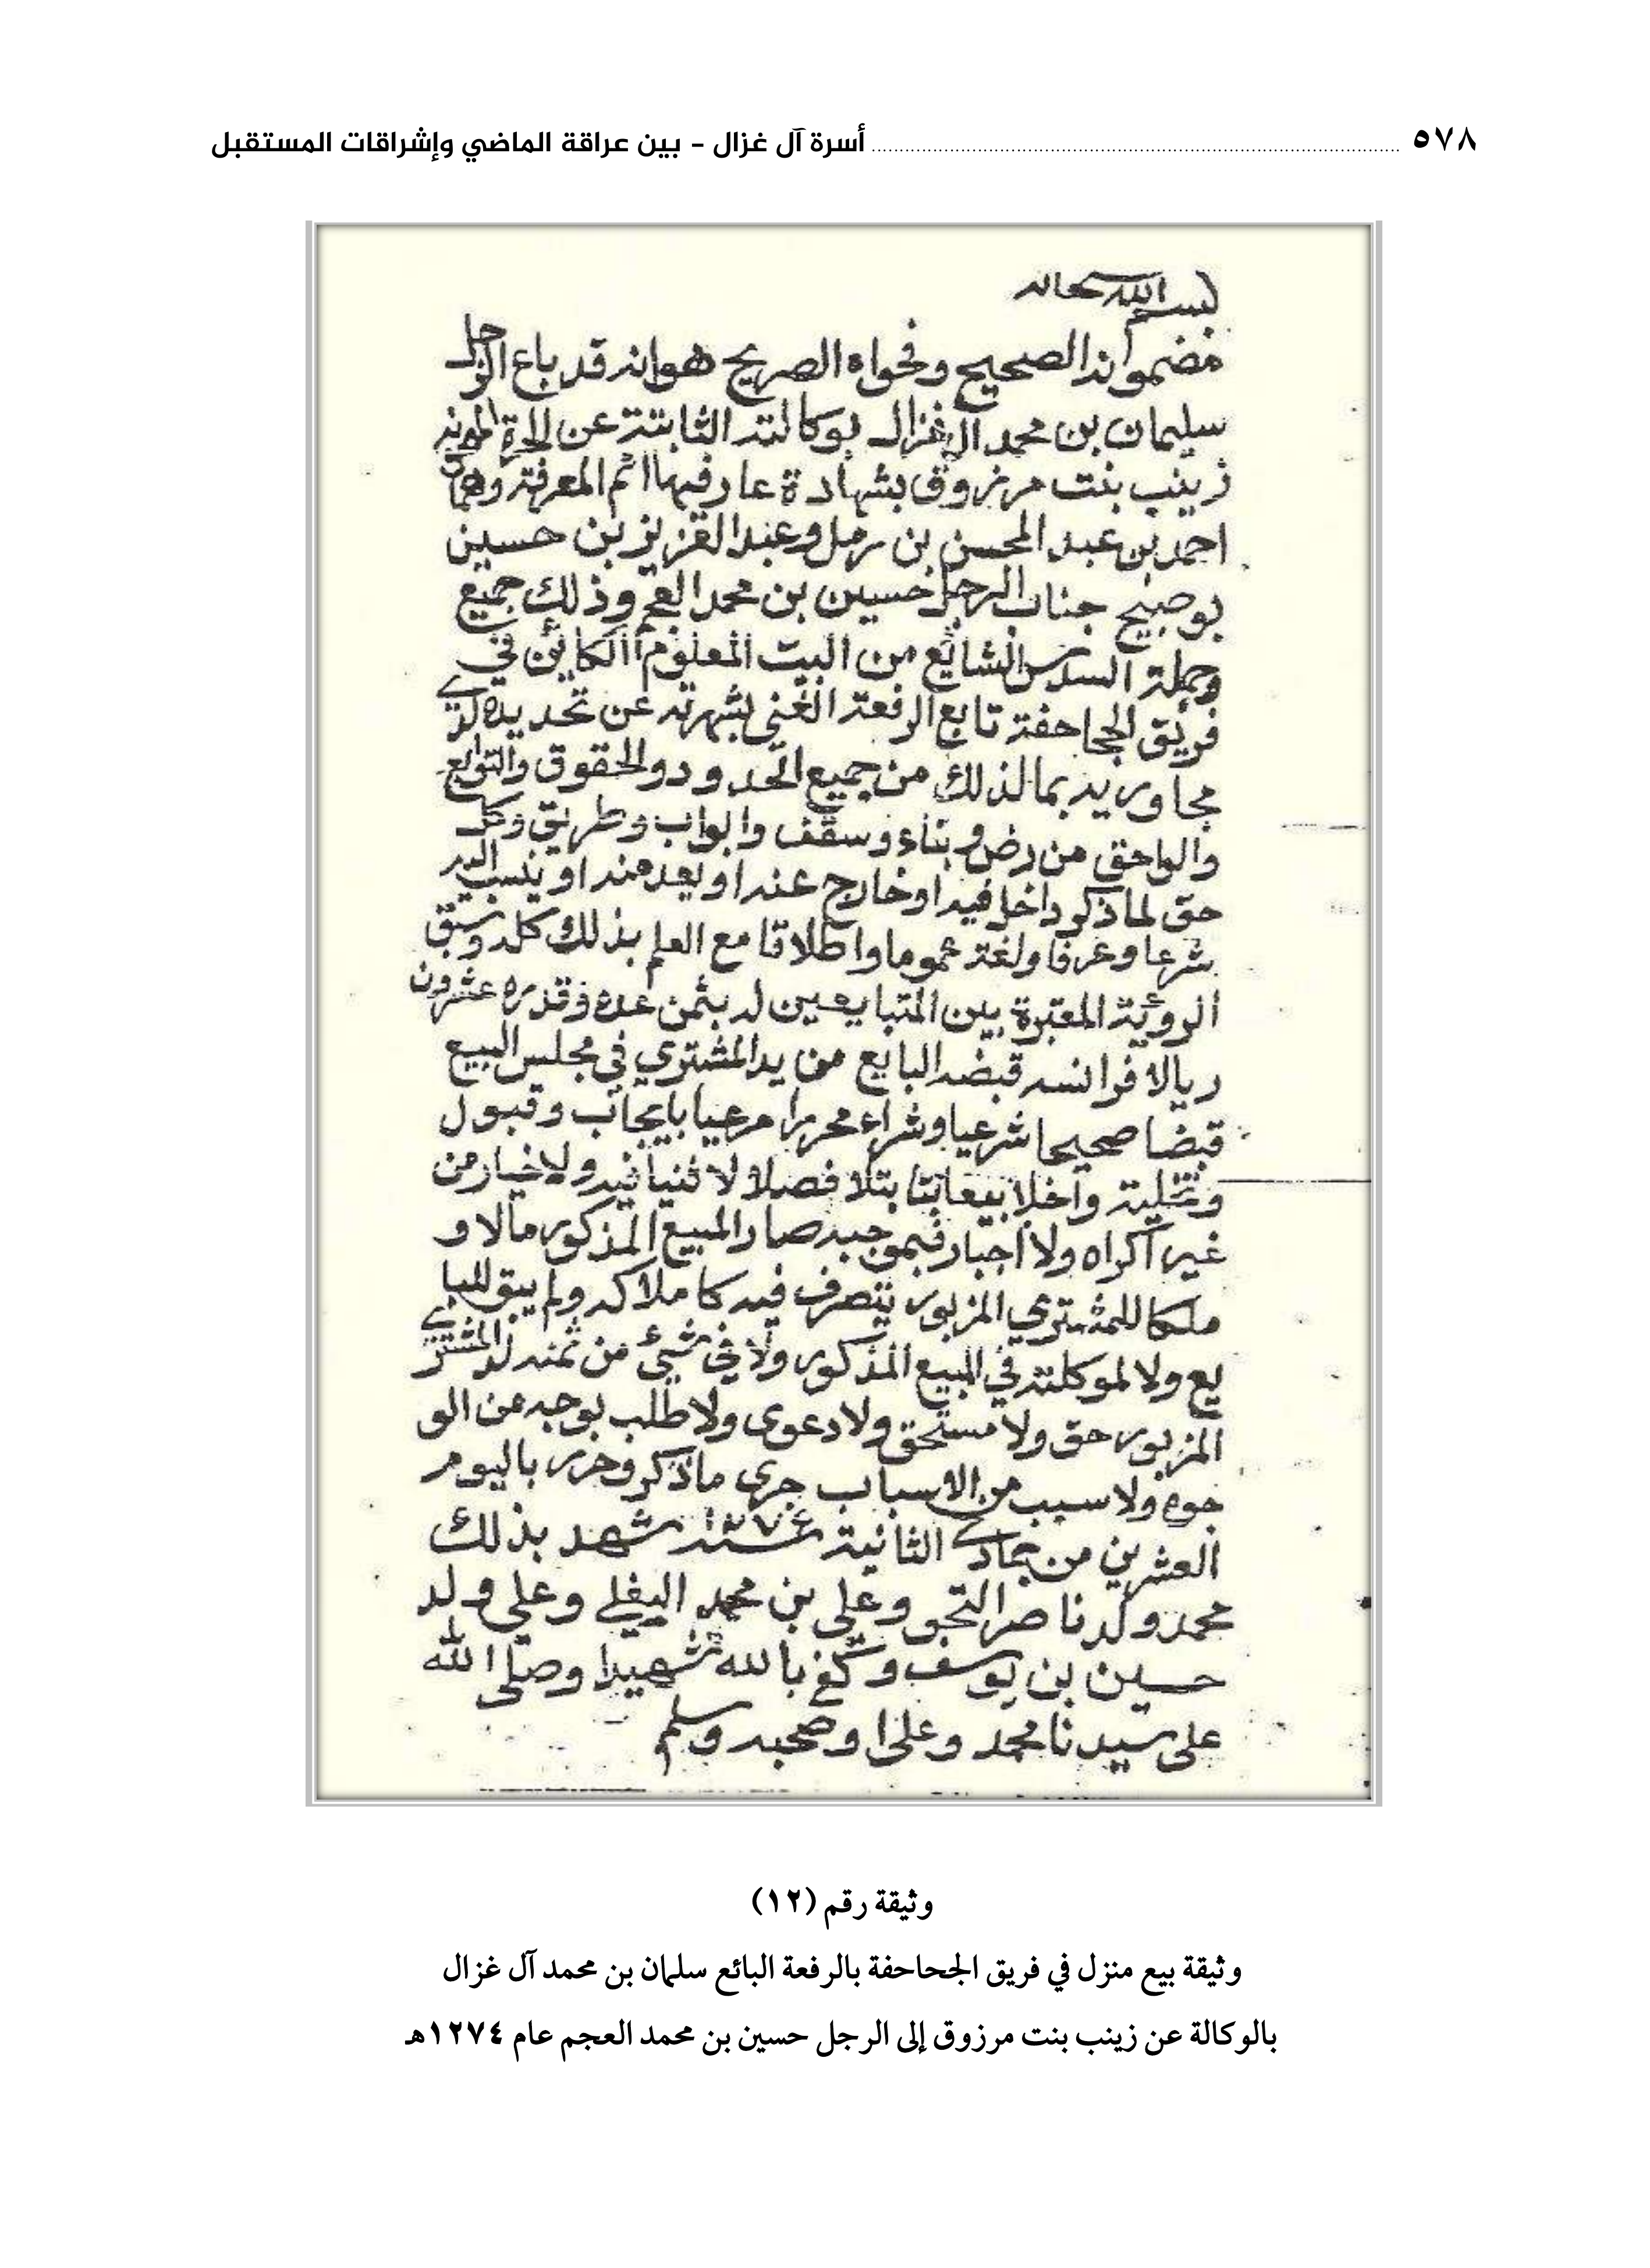 ٥٧٨ أسرة آل غزال - بين عراقة الماضي وإشراقات المستقبل
بسم الله سبحانه
مضمونه الصحيح وفحواه الصريح هو انه قد باع الرجل
سليمان بن محمد ال غزال بوكالته الثابتة عن الحرة
زينب بنت مرزوق بشهادة عارفيها اتم المعرفة وهما
احمد بن عبد المحسن بن رمل وعبد العزيز بن حسين
بوصبيح جناب الرجل حسين بن محمد العجم وذلك جميع
وجملة السدس الشائع من البيت المعلوم الكائن في
فريق الجحاحفة تابع الرفعة الغني بشهرته عن تحديده لدى
مجاوريه بما لذلك من جميع الحدود والحقوق والتوابع
واللواحق من رض وبناء وسقف وابواب وطريق وكل
حق لما ذكر داخل فيه او خارج عنه او يعد منه او ينسب اليه
شرعا وعرفا ولغة عموما واطلاقا مع العلم بذلك كله وسبق
الروية المعتبرة بين المتبايعين له بثمن عدة وقدره عشرون
ريالا فرانسه قبضه البايع من يد المشتري في مجلس البيع
قبضا صحيحا شرعيا وشراء محررا مرعيا بايجاب وقبول
وتخلية واخلا بيعا بتا بتلا فصلا لا ثنيا فيه ولا خيار من
غير اكراه ولا اجبار فبموجبه صار المبيع المذكور مالا و
ملكا للمشتري المزبور يتصرف فيه كاملاكه ولم يبق للبا
يع ولا لموكلته في المبيع المذكور ولا في شيئ من ثمنه لدى المشتري
المزبور حق ولا مستحق ولا دعوى ولا طلب بوجه من الو
جوه ولا سبب من الاسباب جرى ما ذكر وحرر باليوم
العشرين من جمادى الثانية سنة ١٢٧٤ شهد بذلك
محمد ولد ناصر وعلي بن محمد البغلي وعلي ولد
حسين بن يوسف وكفى بالله شهيدا وصلى الله
على سيدنا محمد وعلى ا وصحبه وسلم
وثيقة رقم (١٢)
وثيقة بيع منزل في فريق الجحاحفة بالرفعة البائع سلمان بن محمد آل غزال
بالوكالة عن زينب بنت مرزوق إلى الرجل حسين بن محمد العجم عام ١٢٧٤هـ